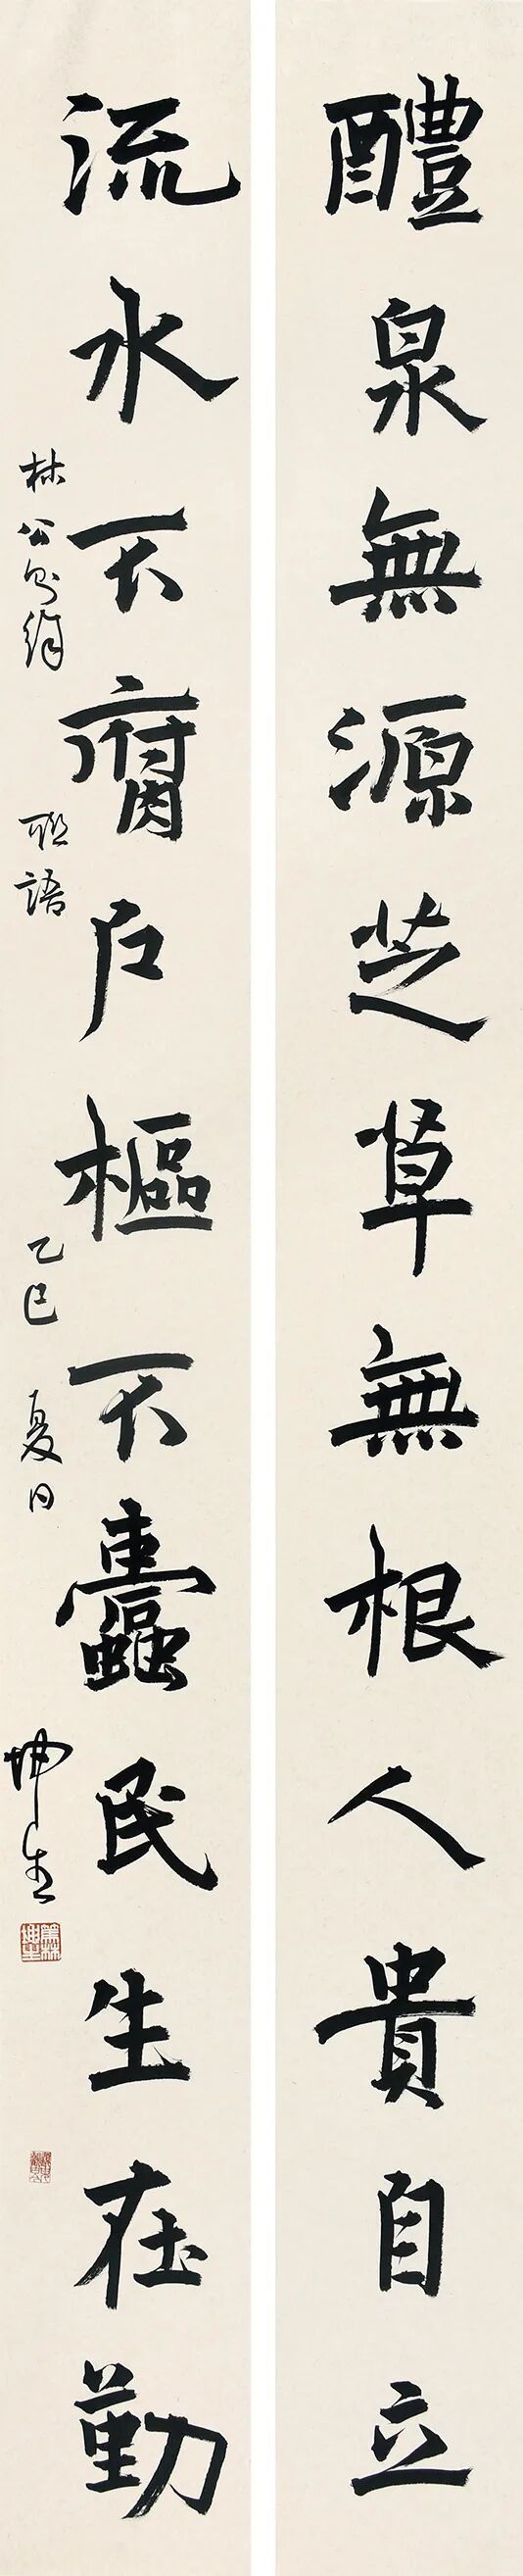 醴泉無源芝草無根人貴自立
流水不腐户樞不蠹民生在勤
林公則徐聯語乙巳夏日坤生